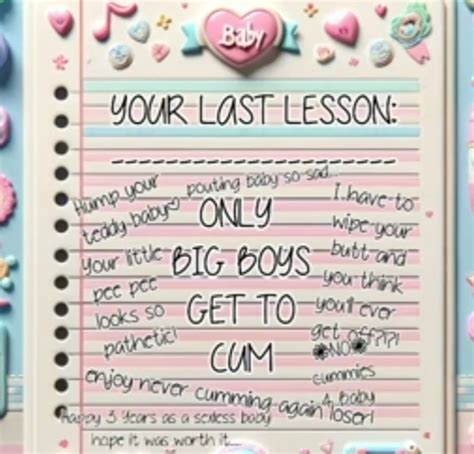 Baby
YOUR LAST LESSON:
Hump your
teddy baby♡
your little
pee pee
looks so
pathetic!
pouting baby so sad...
ONLY
BIG BOYS
GET TO
CUM
I have to
wipe your
butt and
you think
you'll ever
get off?!?!
*NO*
cummies
4 baby
loser!
enjoy never cumming again
happy 3 years as a sexless baby
hope it was worth it...